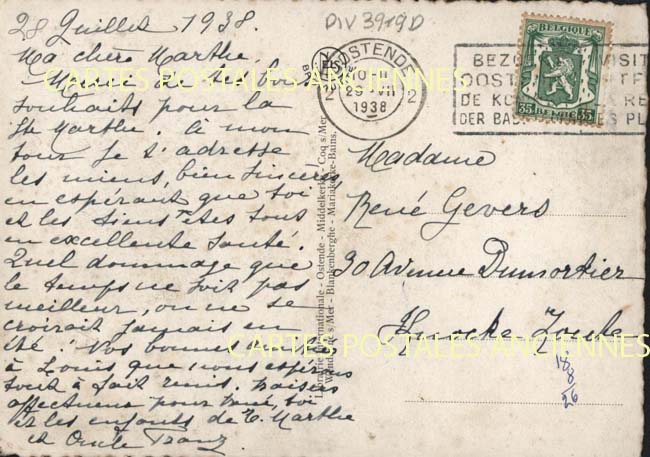 28 Juillet 1938.
DIV 3919D
Ma chère Marthe,
Merci de tes bons
souhaits pour la
Ste Marthe. À mon
tour je t'adresse
les miens, bien sincères
en espérant que toi
et les tiens êtes tous
en excellente santé.
Quel dommage que
le temps ne soit pas
meilleur, on ne se
croirait jamais en
été! Vos bonnes
à Louis que nous espérons
tout à fait remis. Baisers
affectueux pour René, toi
et les enfants de T. Marthe
et Oncle Franz.
OSTENDE
29 VII
1938
2 2
BEZO VISIT
OOST TE
DE KO RE
DER BAD ES PL
BELGIQUE
35 35
BELGIE
Madame
René Gevers
30 Avenue Dumortier
Knocke Zoute
18/8
26
Librairie Internationale - Ostende - Middelkerke - Coq s/Mer
Wenduyne s/Mer - Blankenberghe - Mariakerke-Bains.
CARTES POSTALES ANCIENNES
CARTES POSTALES ANCIENNES